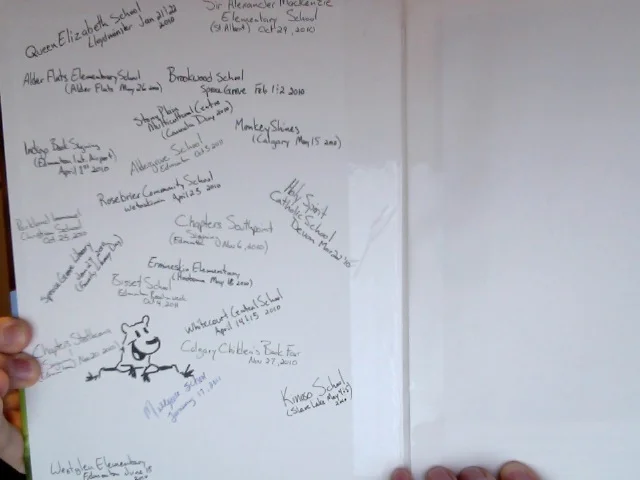 Queen Elizabeth School
Lloydminster Jan 21/22
2010
Sir Alexander Mackenzie
Elementary School
(St. Albert) Oct 29, 2010
Alder Flats Elementary School
(Alder Flats May 26 2010)
Brookwood School
Spruce Grove Feb 1:2 2010
Stony Plain
Multicultural Centre
(Canada Day 2010)
Indigo Book Signing
(Edmonton Int. Airport)
April 2010
Aldergrove School
Edmonton Oct 5 2010
Monkeyshines
(Calgary May 15 2010)
Rosebrier Community School
Wetaskiwin April 23 2010
Holy Spirit
Catholic School
Devon
Christian School
Oct 25, 2010
Chapters Southpoint
Signing
(Edmonton Nov 6, 2010)
Spruce Grove Library
(Family Literacy Day)
Ermineskin Elementary
(Hobbema May 18 2010)
Bisset School
Edmonton
Oct 4, 2010
Whitecourt Central School
April 14:15 2010
Chapters Strathcona
Nov 20, 2010
Calgary Children's Book Fair
Nov 27, 2010
School
January 19, 2011
Kinuso School
(Slave Lake May 4:5
2010
Westglen Elementary
Edmonton June 15
2010